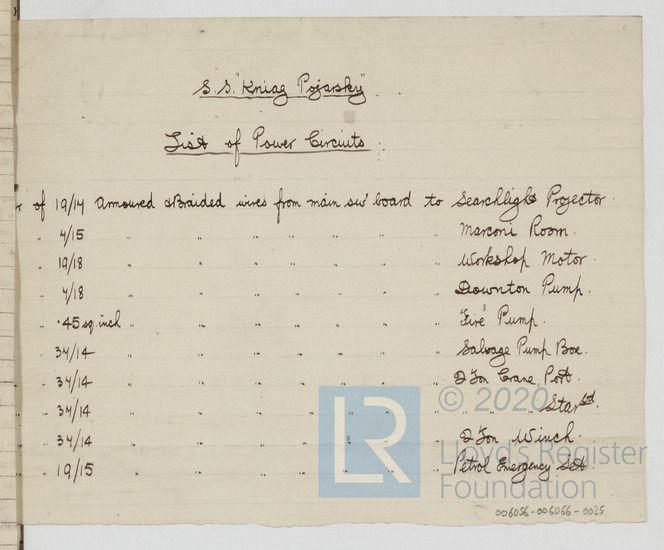 S.S. "Kniaz Pojarsky"
List of Power Circuits.
of 19/14 Armoured & Braided wires from main sw' board to Searchlight Projector.
" 7/15 " " " " " " " " Marconi Room.
" 19/18 " " " " " " " " Workshop Motor.
" 7/18 " " " " " " " " Downton Pump.
" .45 sq. inch " " " " " " " "Fire" Pump.
" 37/14 " " " " " " " " Salvage Pump Box.
" 37/14 " " " " " " " " 2 Ton Crane Port.
" 37/14 " " " " " " " " " " " Starbd.
" 37/14 " " " " " " " " 2 Ton Winch.
" 19/15 " " " " " " " " Petrol Emergency Set.
LR © 2020
Lloyd's Register
Foundation
006056-006066-0025